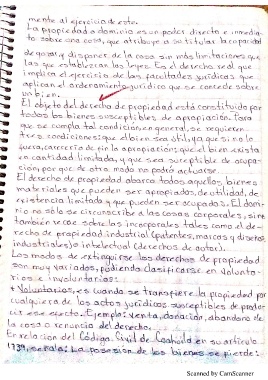 mente al ejercicio de este.
La propiedad o dominio es un poder directo e inmedia-
to sobre una cosa, que atribuye a su titular la capacidad
de gozar y disponer de la cosa sin más limitaciones que
las que establezcan las leyes. Es el derecho real que
implica el ejercicio de las facultades jurídicas que
aplican el ordenamiento jurídico que se concede sobre
un bien.
El objeto del derecho de propiedad está constituido por
todos los bienes susceptibles de apropiación. Para
que se cumpla tal condición en general, se requieren
tres condiciones: que el bien sea útil, ya que si no lo
fuera, carecería de fin la apropiación; que el bien exista
en cantidad limitada, y que sea suceptible de ocupa-
ción, porque de otra modo no podrá actuarse.
El derecho de propiedad abarca todos aquellos bienes
materiales que pueden ser apropiados, de utilidad, de
existencia limitada y que pueden ser ocupados. El domi-
nio no sólo se circunscribe a las cosas corporales, sino
también recae sobre las incorporales tales como el de-
recho de propiedad industrial (patentes, marcas y diseños
industriales) o intelectual (derechos de autor).
Los modos de extinguirse los derechos de propiedad
son muy variados, pudiendo clasificarse en volunta-
rios e involuntarios:
Voluntarios, es cuando se transfiere la propiedad por
cualquiera de los actos jurídicos susceptibles de produ-
cir ese efecto. Ejemplo: venta, donación, abandono de
la cosa o renuncia del derecho.
En relación del Código Civil de Coahuila en su artículo
señala: La posesión de los bienes se pierde:
Scanned by CamScanner